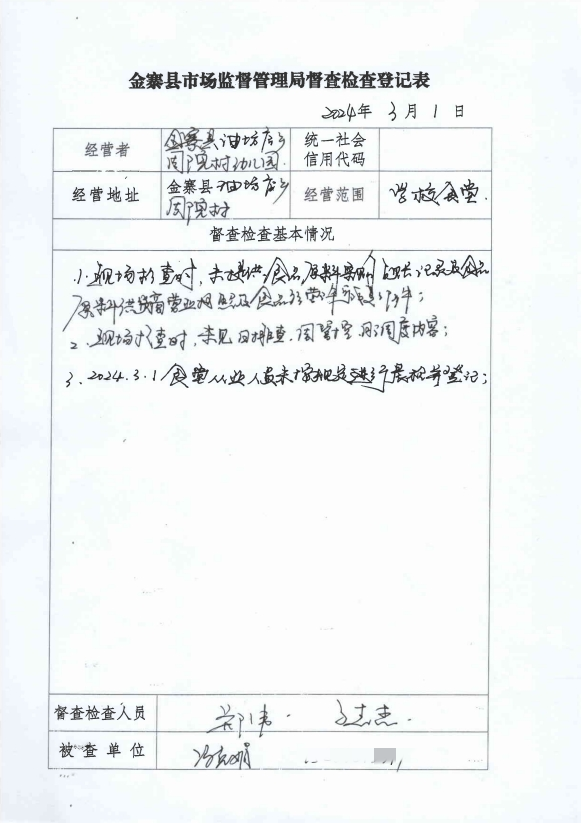 金寨县市场监督管理局督查检查登记表
2024年 3月 1日
经营者
金寨县油坊店乡
周院村幼儿园.
统一社会
信用代码
经营地址
金寨县油坊店乡
周院村
经营范围
学校食堂.
督查检查基本情况
1.现场检查时,未提供食品原料采购记录及食品
原料供货商营业执照及食品经营许可证
2.现场检查时,未见日排查、周 月调度内容;
3.2024.3.1食堂从业人员未按规定进行晨检并登记;
督查检查人员
被查单位